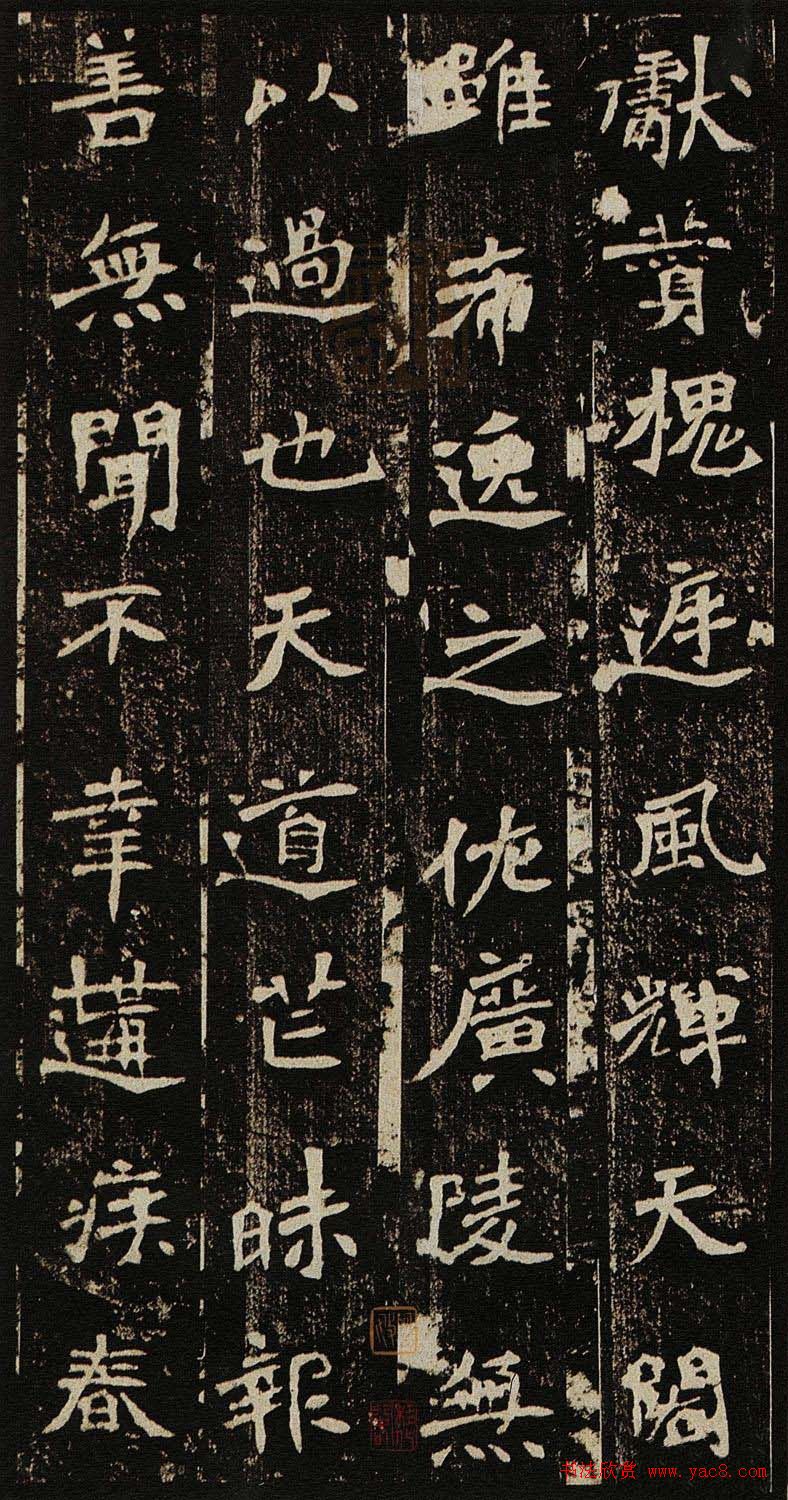 獻賛槐庭風輝天閣
雖希逸之佐廣陵無
以過也天道芒昧報
善無聞不幸遘疾春
书法欣赏 www.yac8.com